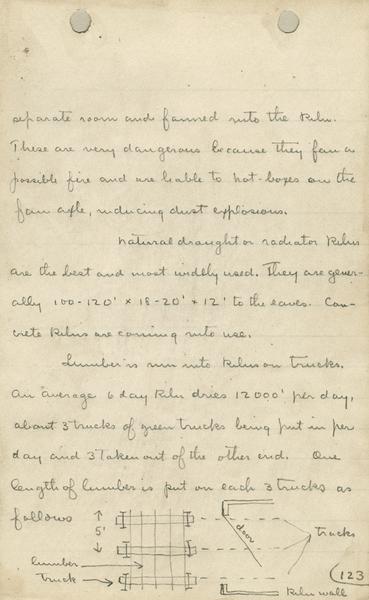 separate room and fanned into the kiln.
These are very dangerous because they fan a
possible fire and are liable to hot-boxes on the
fan axle, inducing dust explosions.
Natural draught or radiator kilns
are the best and most widely used. They are gener-
ally 100-120' x 18-20' x 12' to the eaves. Con-
crete kilns are coming into use.
Lumber is run into kilns on trucks.
An average 6 day kiln dries 12000' per day,
about 3 trucks of green trucks being put in per
day and 3 taken out of the other end. One
length of lumber is put on each 3 trucks as
follows
5'
door
tracks
lumber
truck
kiln wall
123